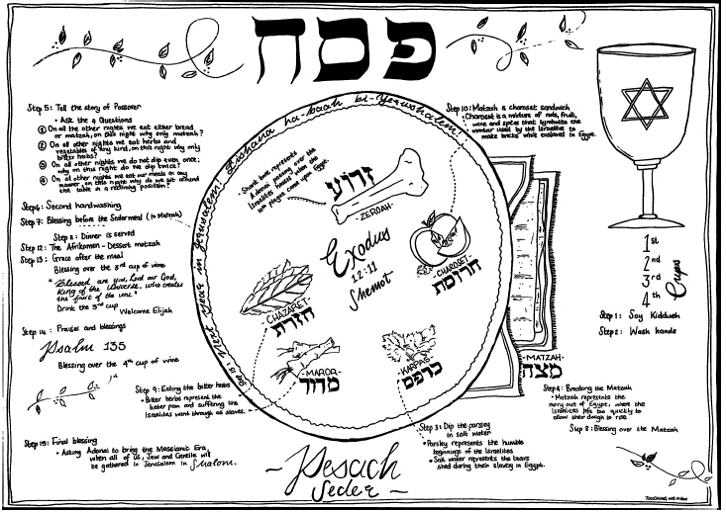 פסח
Step 5: Tell the story of Passover
• Ask the 4 Questions
① On all the other nights we eat either bread
or matzah, on this night why only matzah?
② On all other nights we eat herbs and
vegetables of any kind, on this night why only
bitter herbs?
③ On all other nights we do not dip even once;
why on this night do we dip twice?
④ On all other nights we eat our meals in any
manner, on this night why do we sit around
the table in a reclining position?
Step 6: Second handwashing
Step 7: Blessing before the Seder meal (to Matzah)
Step 11: Dinner is served
Step 12: The Afikomen - Dessert matzah
Step 13: Grace after the meal
Blessing over the 3rd cup of wine
"Blessed are you, Lord our God,
King of the Universe, who creates
the fruit of the vine"
Drink the 3rd cup
Welcome Elijah
Step 14: Praises and blessings
Psalm 135
Blessing over the 4th cup of wine
Step 9: Eating the bitter herbs
• Bitter herbs represent the
bitter pain and suffering the
Israelites went through as slaves.
Step 15: Final blessing
• Asking Adonai to bring the Messianic Era,
when all of us, Jew and Gentile will
be gathered in Jerusalem in Shalom.
Next year in Jerusalem! L'shana ha-baah bi-Yerushalem!
• Shank bone represents
Adonai passing over the
Israelites houses when the
plagues came upon Egypt.
זרוע
-ZEROAH-
Exodus
12:11
Shemot
-CHAROSET-
חריסת
-CHAZARET-
חזרת
-MAROR-
מרור
-KARPAS-
כרפס
-MATZAH-
מצה
Step 10: Matzah & charoset sandwich
• Charoset is a mixture of nuts, fruit,
wine and spices that symbolize the
mortar used by the Israelites to
make bricks while enslaved in Egypt.
1st
2nd
3rd
4th
Cups
Step 1: Say Kiddush
Step 2: Wash hands
Step 4: Breaking the Matzah
• Matzah represents the
hurry out of Egypt, where the
Israelites left too quickly to
allow their dough to rise
Step 8: Blessing over the Matzah
Step 3: Dip the parsley
in salt water
• Parsley represents the humble
beginnings of the Israelites
• Salt water represents the tears
shed during their slavery in Egypt.
-Pesach
Seder-